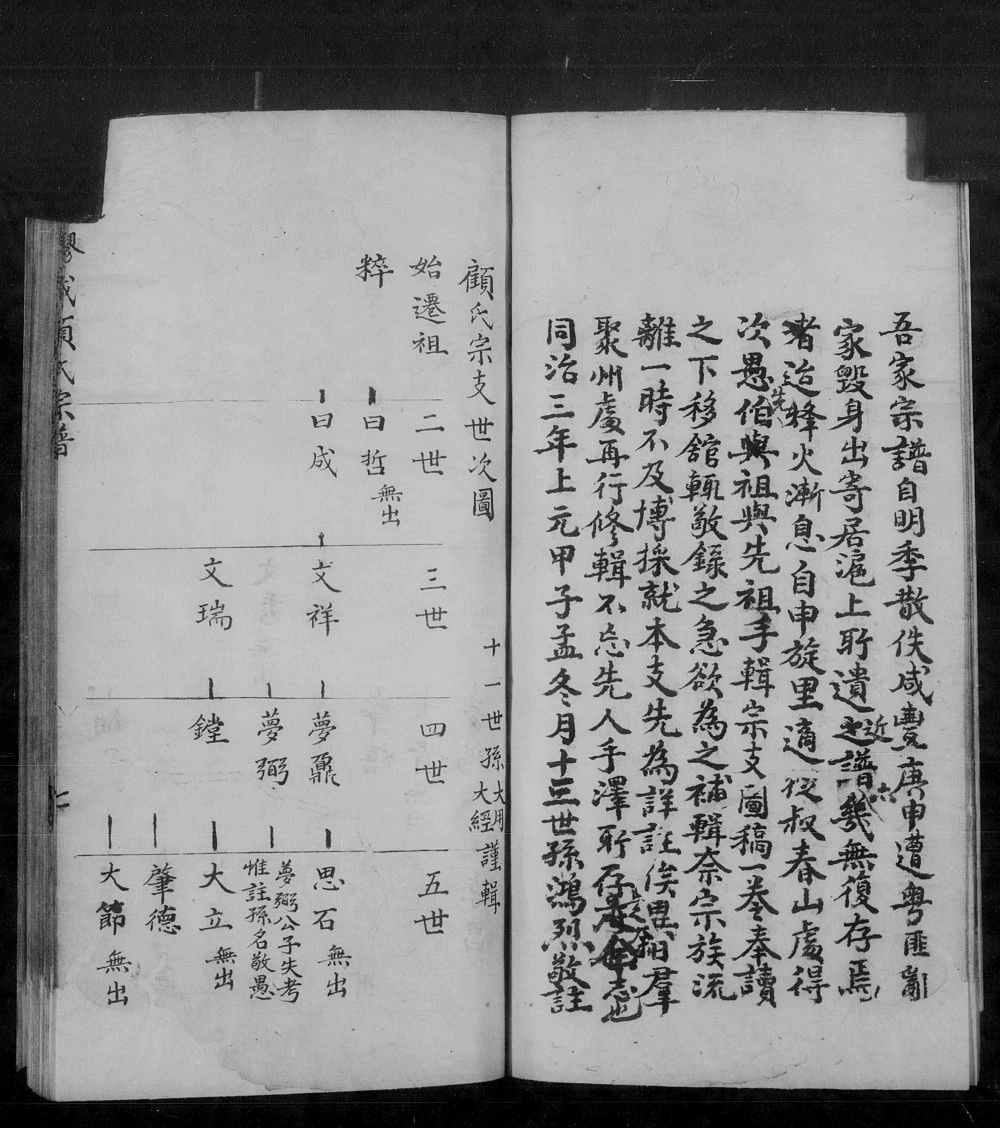 吾家宗譜自明季散佚咸豐庚申遭粵匪亂
家毀身出寄居滬上所遺近譜幾無復存焉
者迨烽火漸息自申旋里適從叔春山處得
次愚先伯與祖與先祖手輯宗支圖稿一卷奉讀
之下移舘輒敬錄之急欲為之補輯奈宗族流
離一時不及博採就本支先為詳註俟異日羣
聚州處再行修輯不忘先人手澤所存是余志也
同治三年上元甲子孟冬月十三世孫鴻烈敬註
顧氏宗支世次圖
十一世孫大用大經謹輯
始遷祖
二世
三世
四世
五世
粹
曰哲無出
曰成
文祥
夢鼏
思石無出
夢弼
夢弼公子失考
惟註孫名敬愚
文瑞
鏜
大立無出
肇德
大節無出
顧氏宗譜